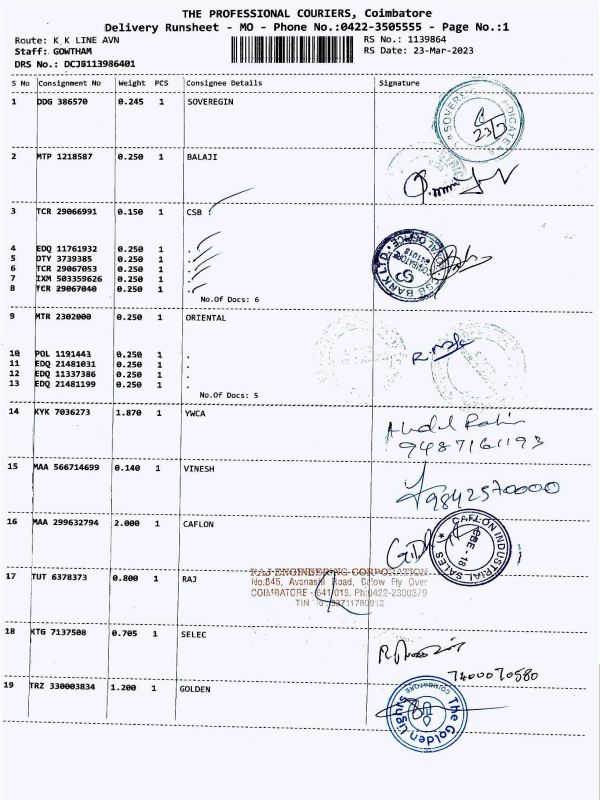 THE PROFESSIONAL COURIERS, Coimbatore
Delivery Runsheet - MO - Phone No.:0422-3505555 - Page No.:1
Route: K K LINE AVN
RS No.: 1139864
Staff: GOWTHAM
RS Date: 23-Mar-2023
DRS No.: DCJB113986401
S No Consignment No Weight PCS Consignee Details Signature
1 DDG 386570 0.245 1 SOVEREGIN
23/3
2 MTP 1218587 0.250 1 BALAJI
3 TCR 29066991 0.150 1 CSB
4 EDQ 11761932 0.250 1 .
5 DTY 3739385 0.250 1 .
6 TCR 29067053 0.250 1 .
7 IXM 503359626 0.250 1 .
8 TCR 29067040 0.250 1 .
No.Of Docs: 6
9 MTR 2302000 0.250 1 ORIENTAL
10 POL 1191443 0.250 1 .
11 EDQ 21481031 0.250 1 .
12 EDQ 11337386 0.250 1 .
13 EDQ 21481199 0.250 1 .
No.Of Docs: 5
14 KYK 7036273 1.870 1 YWCA
9487161193
15 MAA 566714699 0.140 1 VINESH
9842570000
16 MAA 299632794 2.000 1 CAFLON
CAFLON INDUSTRIAL SALES
CBE. 18
17 TUT 6378373 0.800 1 RAJ
RAJ ENGINEERING CORPORATION
No.845, Avanashi Road, Below Fly Over
COIMBATORE - 641 018. Ph:0422-2300379
18 KTG 7137508 0.705 1 SELEC
19 TRZ 330003834 1.200 1 GOLDEN
The Golden
COIMBATORE